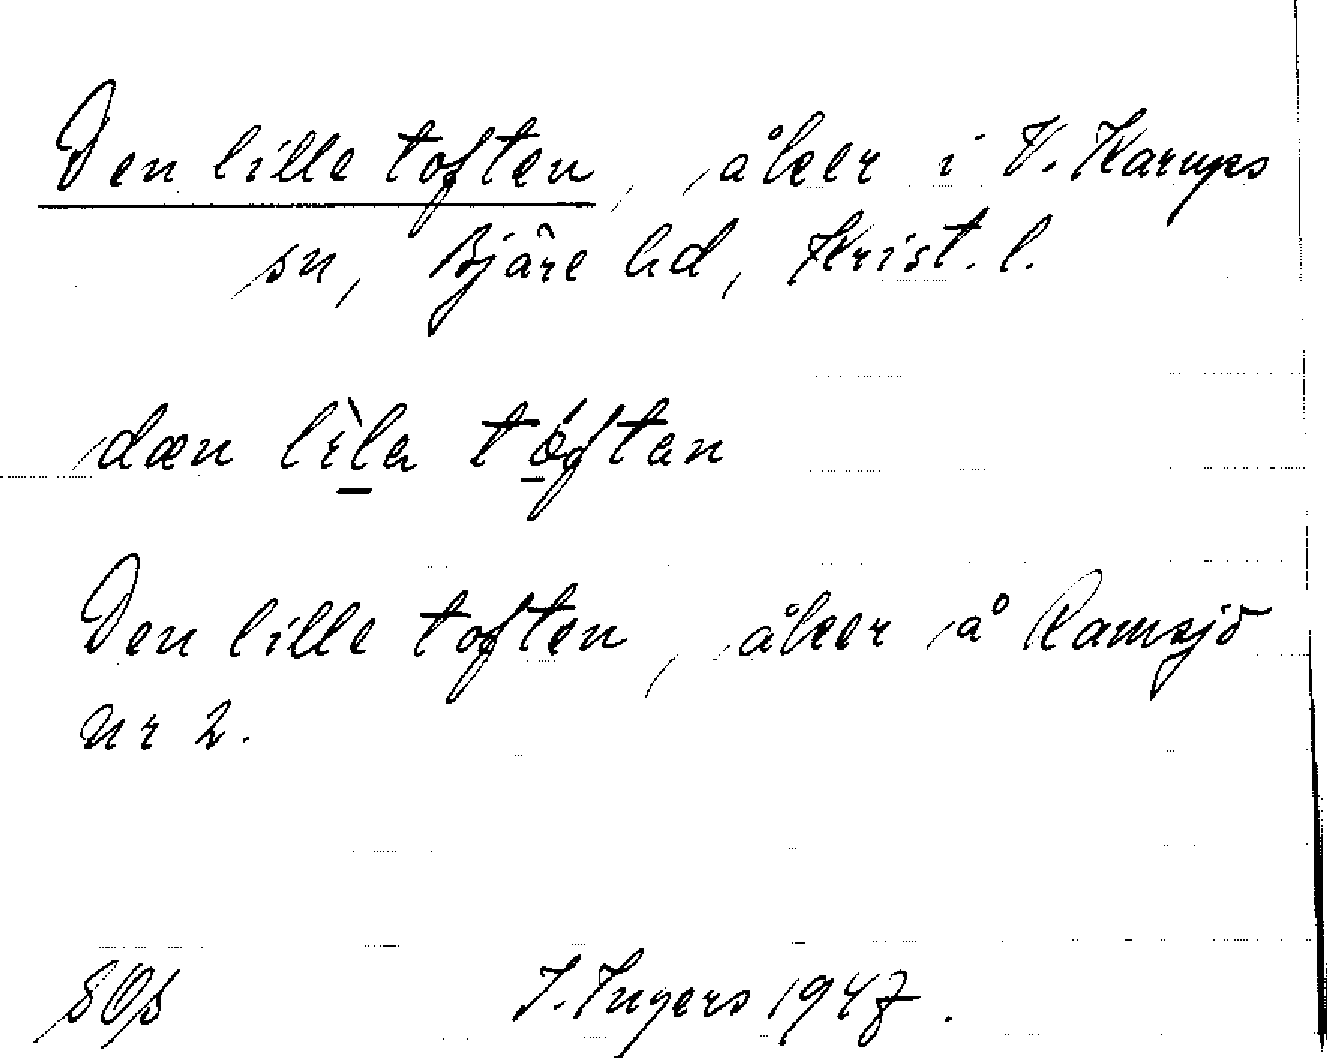 Den lille toften, åker i V. Karups
sn, Bjäre hd, Krist. l.
dæn lìla tóftan
Den lille toften, åker å Ramsjö
nr 2.
I. Ingers 1947.